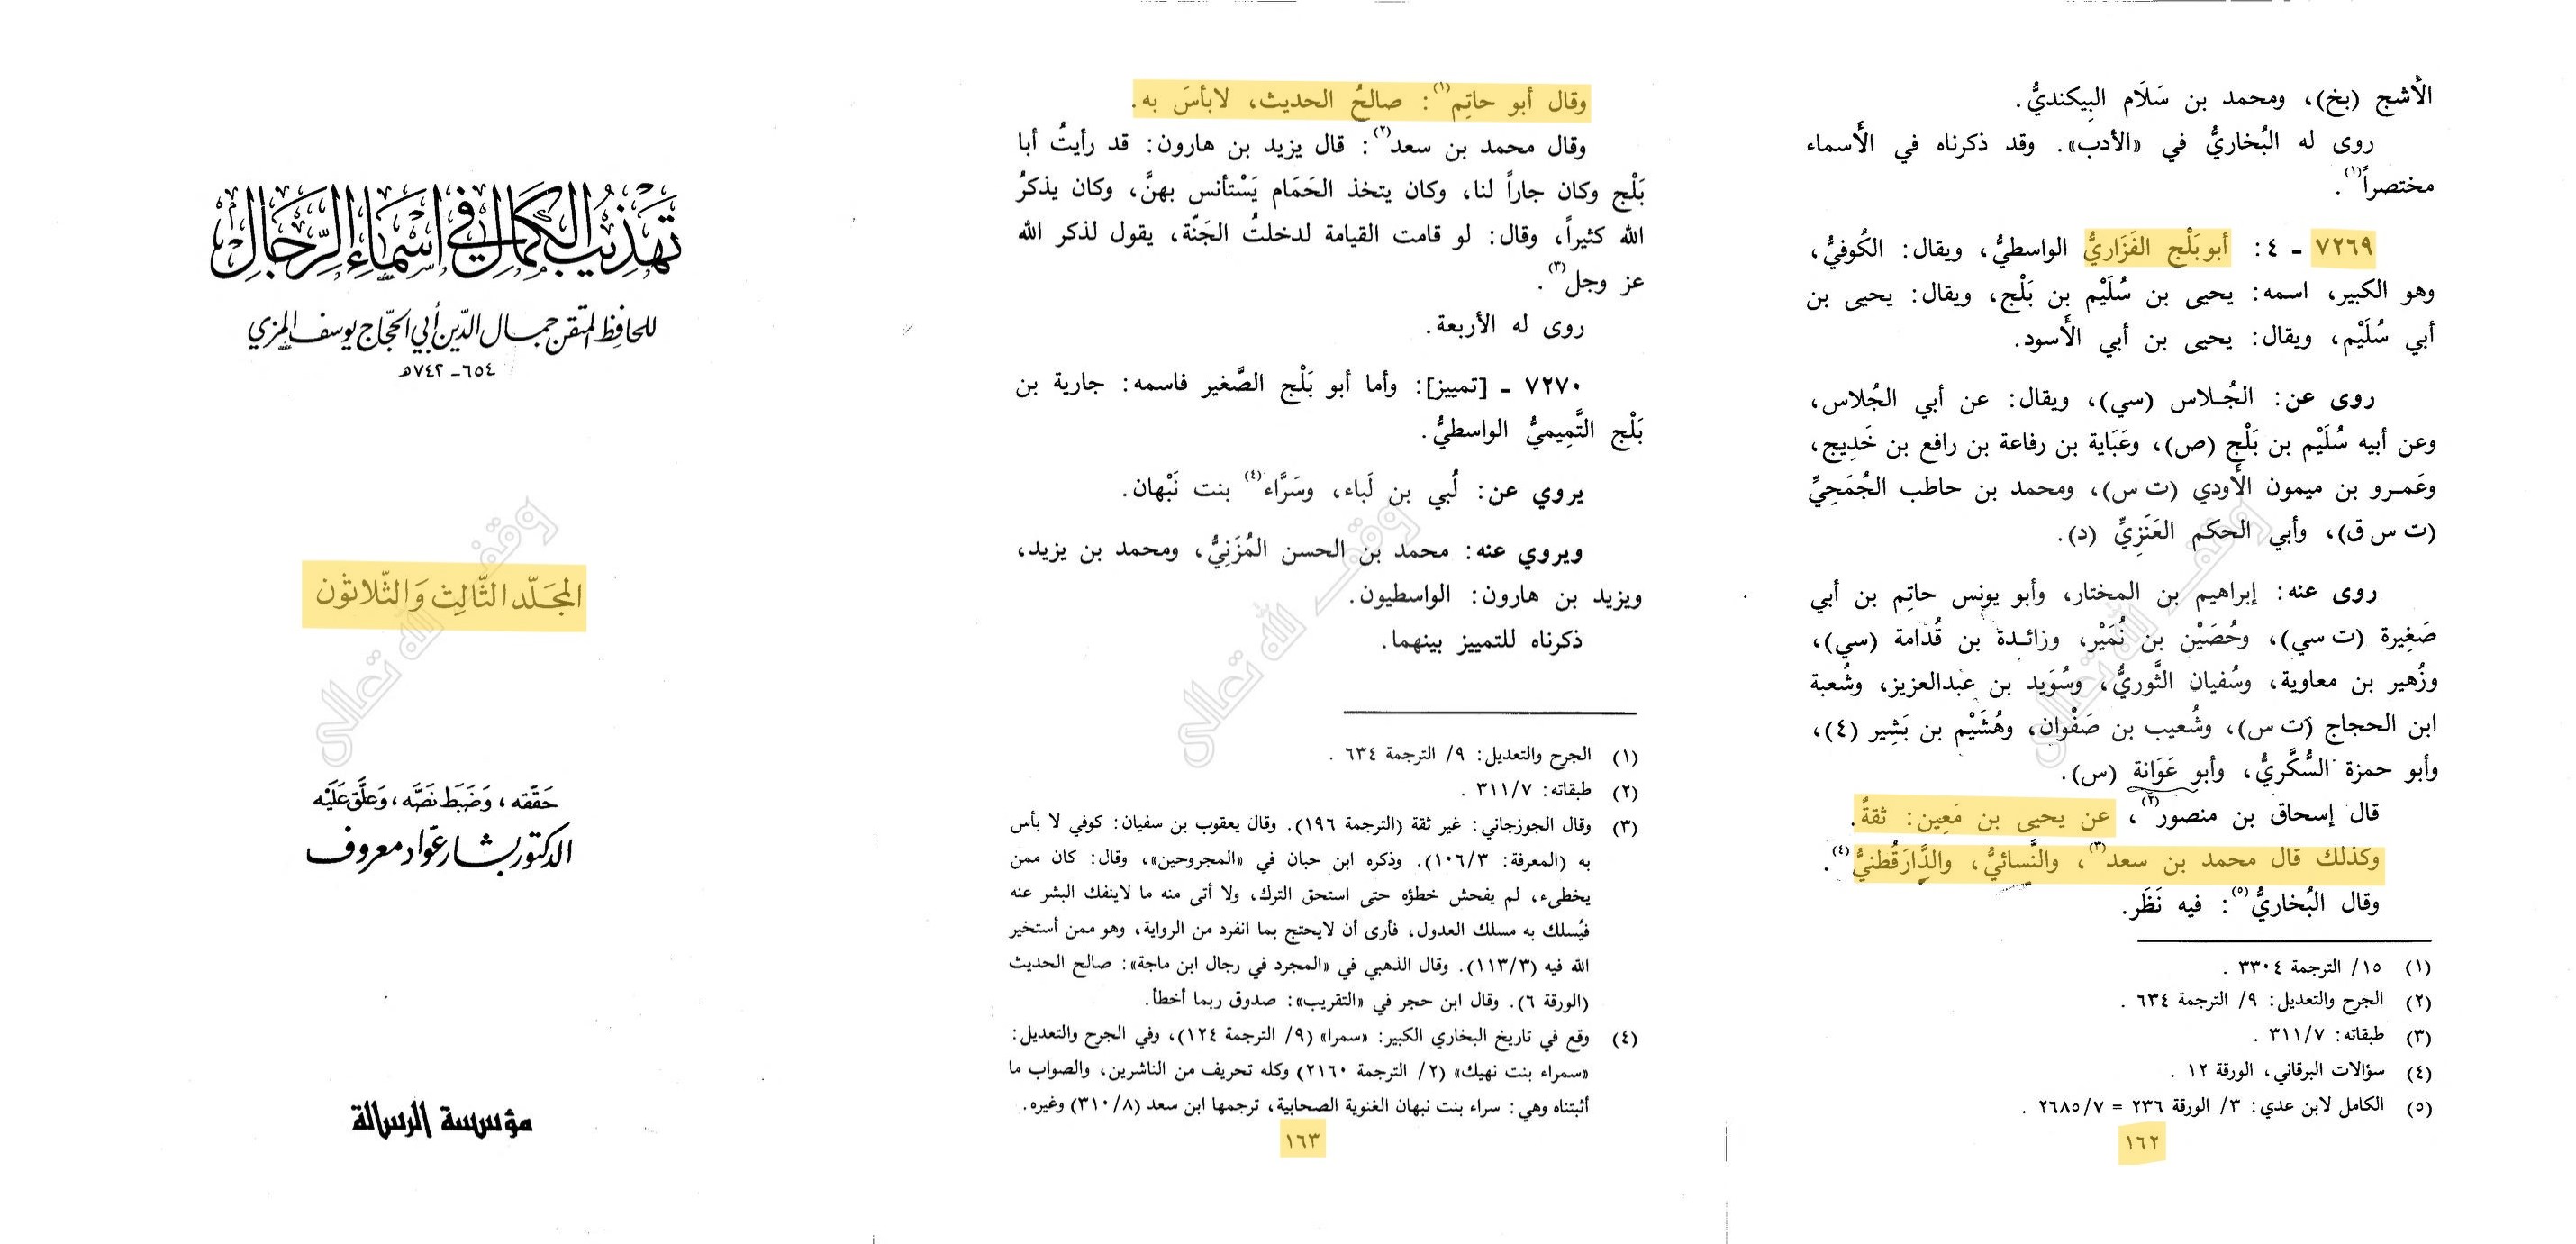 الأشج (بخ)، ومحمد بن سَلَام البِيكنديُّ.
روى له البُخاريُّ في «الأدب». وقد ذكرناه في الأَسماء
مختصراً(١).
٧٢٦٩ ـ ٤: أبو بَلْج الفَزَاريُّ الواسطيُّ، ويقال: الكُوفيُّ،
وهو الكبير، اسمه: يحيى بن سُلَيْم بن بَلْج، ويقال: يحيى بن
أبي سُلَيْم، ويقال: يحيى بن أبي الأَسود.
روى عن: الجُلاس (سي)، ويقال: عن أبي الجُلاس،
وعن أبيه سُلَيْم بن بَلْج (ص)، وعَبَاية بن رفاعة بن رافع بن خَدِيج،
وعَمرو بن ميمون الأَودي (ت س)، ومحمد بن حاطب الجُمَحِيِّ
(ت س ق)، وأبي الحكم العَنَزِيِّ (د).
روى عنه: إبراهيم بن المختار، وأبو يونس حاتِم بن أبي
صَغِيرة (ت سي)، وحُصَيْن بن نُمَيْر، وزائدة بن قُدَامة (سي)،
وزُهير بن معاوية، وسُفيان الثَّوريُّ، وسُوَيد بن عبدالعزيز، وشُعبة
ابن الحجاج (ت س)، وشُعيب بن صَفْوان، وهُشَيْم بن بَشِير (٤)،
وأبو حمزة السُّكَّريُّ، وأبو عَوَانة (س).
قال إسحاق بن منصور(٢)، عن يحيى بن مَعِين: ثقةٌ.
وكذلك قال محمد بن سعد(٣)، والنَّسائيُّ، والدَّارَقُطنيُّ(٤).
وقال البُخاريُّ(٥): فيه نَظَر.
(١) ١٥/ الترجمة ٣٣٠٤ .
(٢) الجرح والتعديل: ٩/ الترجمة ٦٣٤ .
(٣) طبقاته: ٣١١/٧ .
(٤) سؤالات البرقاني، الورقة ١٢ .
(٥) الكامل لابن عدي: ٣/ الورقة ٢٣٦ = ٢٦٨٥/٧ .
١٦٢
وقال أبو حاتِم(١): صالحُ الحديث، لابأسَ به.
وقال محمد بن سعد(٢): قال يزيد بن هارون: قد رأيتُ أبا
بَلْج وكان جاراً لنا، وكان يتخذ الحَمَام يَسْتأنس بهنَّ، وكان يذكرُ
الله كثيراً، وقال: لو قامت القيامة لدخلتُ الجَنّة، يقول لذكر الله
عز وجل(٣).
روى له الأربعة.
٧٢٧٠ ـ [تمييز]: وأما أبو بَلْج الصَّغير فاسمه: جارية بن
بَلْج التَّمِيميُّ الواسطيُّ.
يروي عن: لُبي بن لَباء، وسَرَّاء(٤) بنت نَبْهان.
ويروي عنه: محمد بن الحسن المُزَنِيُّ، ومحمد بن يزيد،
ويزيد بن هارون: الواسطيون.
ذكرناه للتمييز بينهما.
(١) الجرح والتعديل: ٩/ الترجمة ٦٣٤ .
(٢) طبقاته: ٣١١/٧ .
(٣) وقال الجوزجاني: غير ثقة (الترجمة ١٩٦). وقال يعقوب بن سفيان: كوفي لا بأس
به (المعرفة: ١٠٦/٣). وذكره ابن حبان في «المجروحين»، وقال: كان ممن
يخطىء، لم يفحش خطؤه حتى استحق الترك، ولا أتى منه ما لاينفك البشر عنه
فيُسلك به مسلك العدول، فأرى أن لايحتج بما انفرد من الرواية، وهو ممن أستخير
الله فيه (١١٣/٣). وقال الذهبي في «المجرد في رجال ابن ماجة»: صالح الحديث
(الورقة ٦). وقال ابن حجر في «التقريب»: صدوق ربما أخطأ.
(٤) وقع في تاريخ البخاري الكبير: «سمرا» (٩/ الترجمة ١٢٤)، وفي الجرح والتعديل:
«سمراء بنت نهيك» (٢/ الترجمة ٢١٦٠) وكله تحريف من الناشرين، والصواب ما
أثبتناه وهي: سراء بنت نبهان الغنوية الصحابية، ترجمها ابن سعد (٣١٠/٨) وغيره.
١٦٣
تهذيب الكمال في أسماء الرجال
للحافظ المتقن جمال الدين أبي الحجاج يوسف المزي
٦٥٤ ـ ٧٤٢هـ
المجلّد الثّالِث وَالثّلاثون
حَقّقه، وَضَبَط نَصّه، وَعلّق عَلَيْه
الدكتور بشار عوّاد معروف
مؤسسة الرسالة
وقف لله تعالى
وقف لله تعالى
وقف لله تعالى